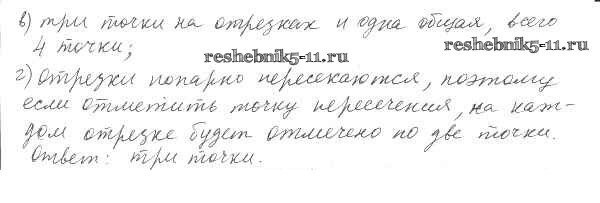 в) три точки на отрезках и одна общая, всего
4 точки;
reshebnik5-11.ru
reshebnik5-11.ru
г) Отрезки попарно пересекаются, поэтому
если отметить точку пересечения, на каж-
дом отрезке будет отмечено по две точки.
Ответ: три точки.